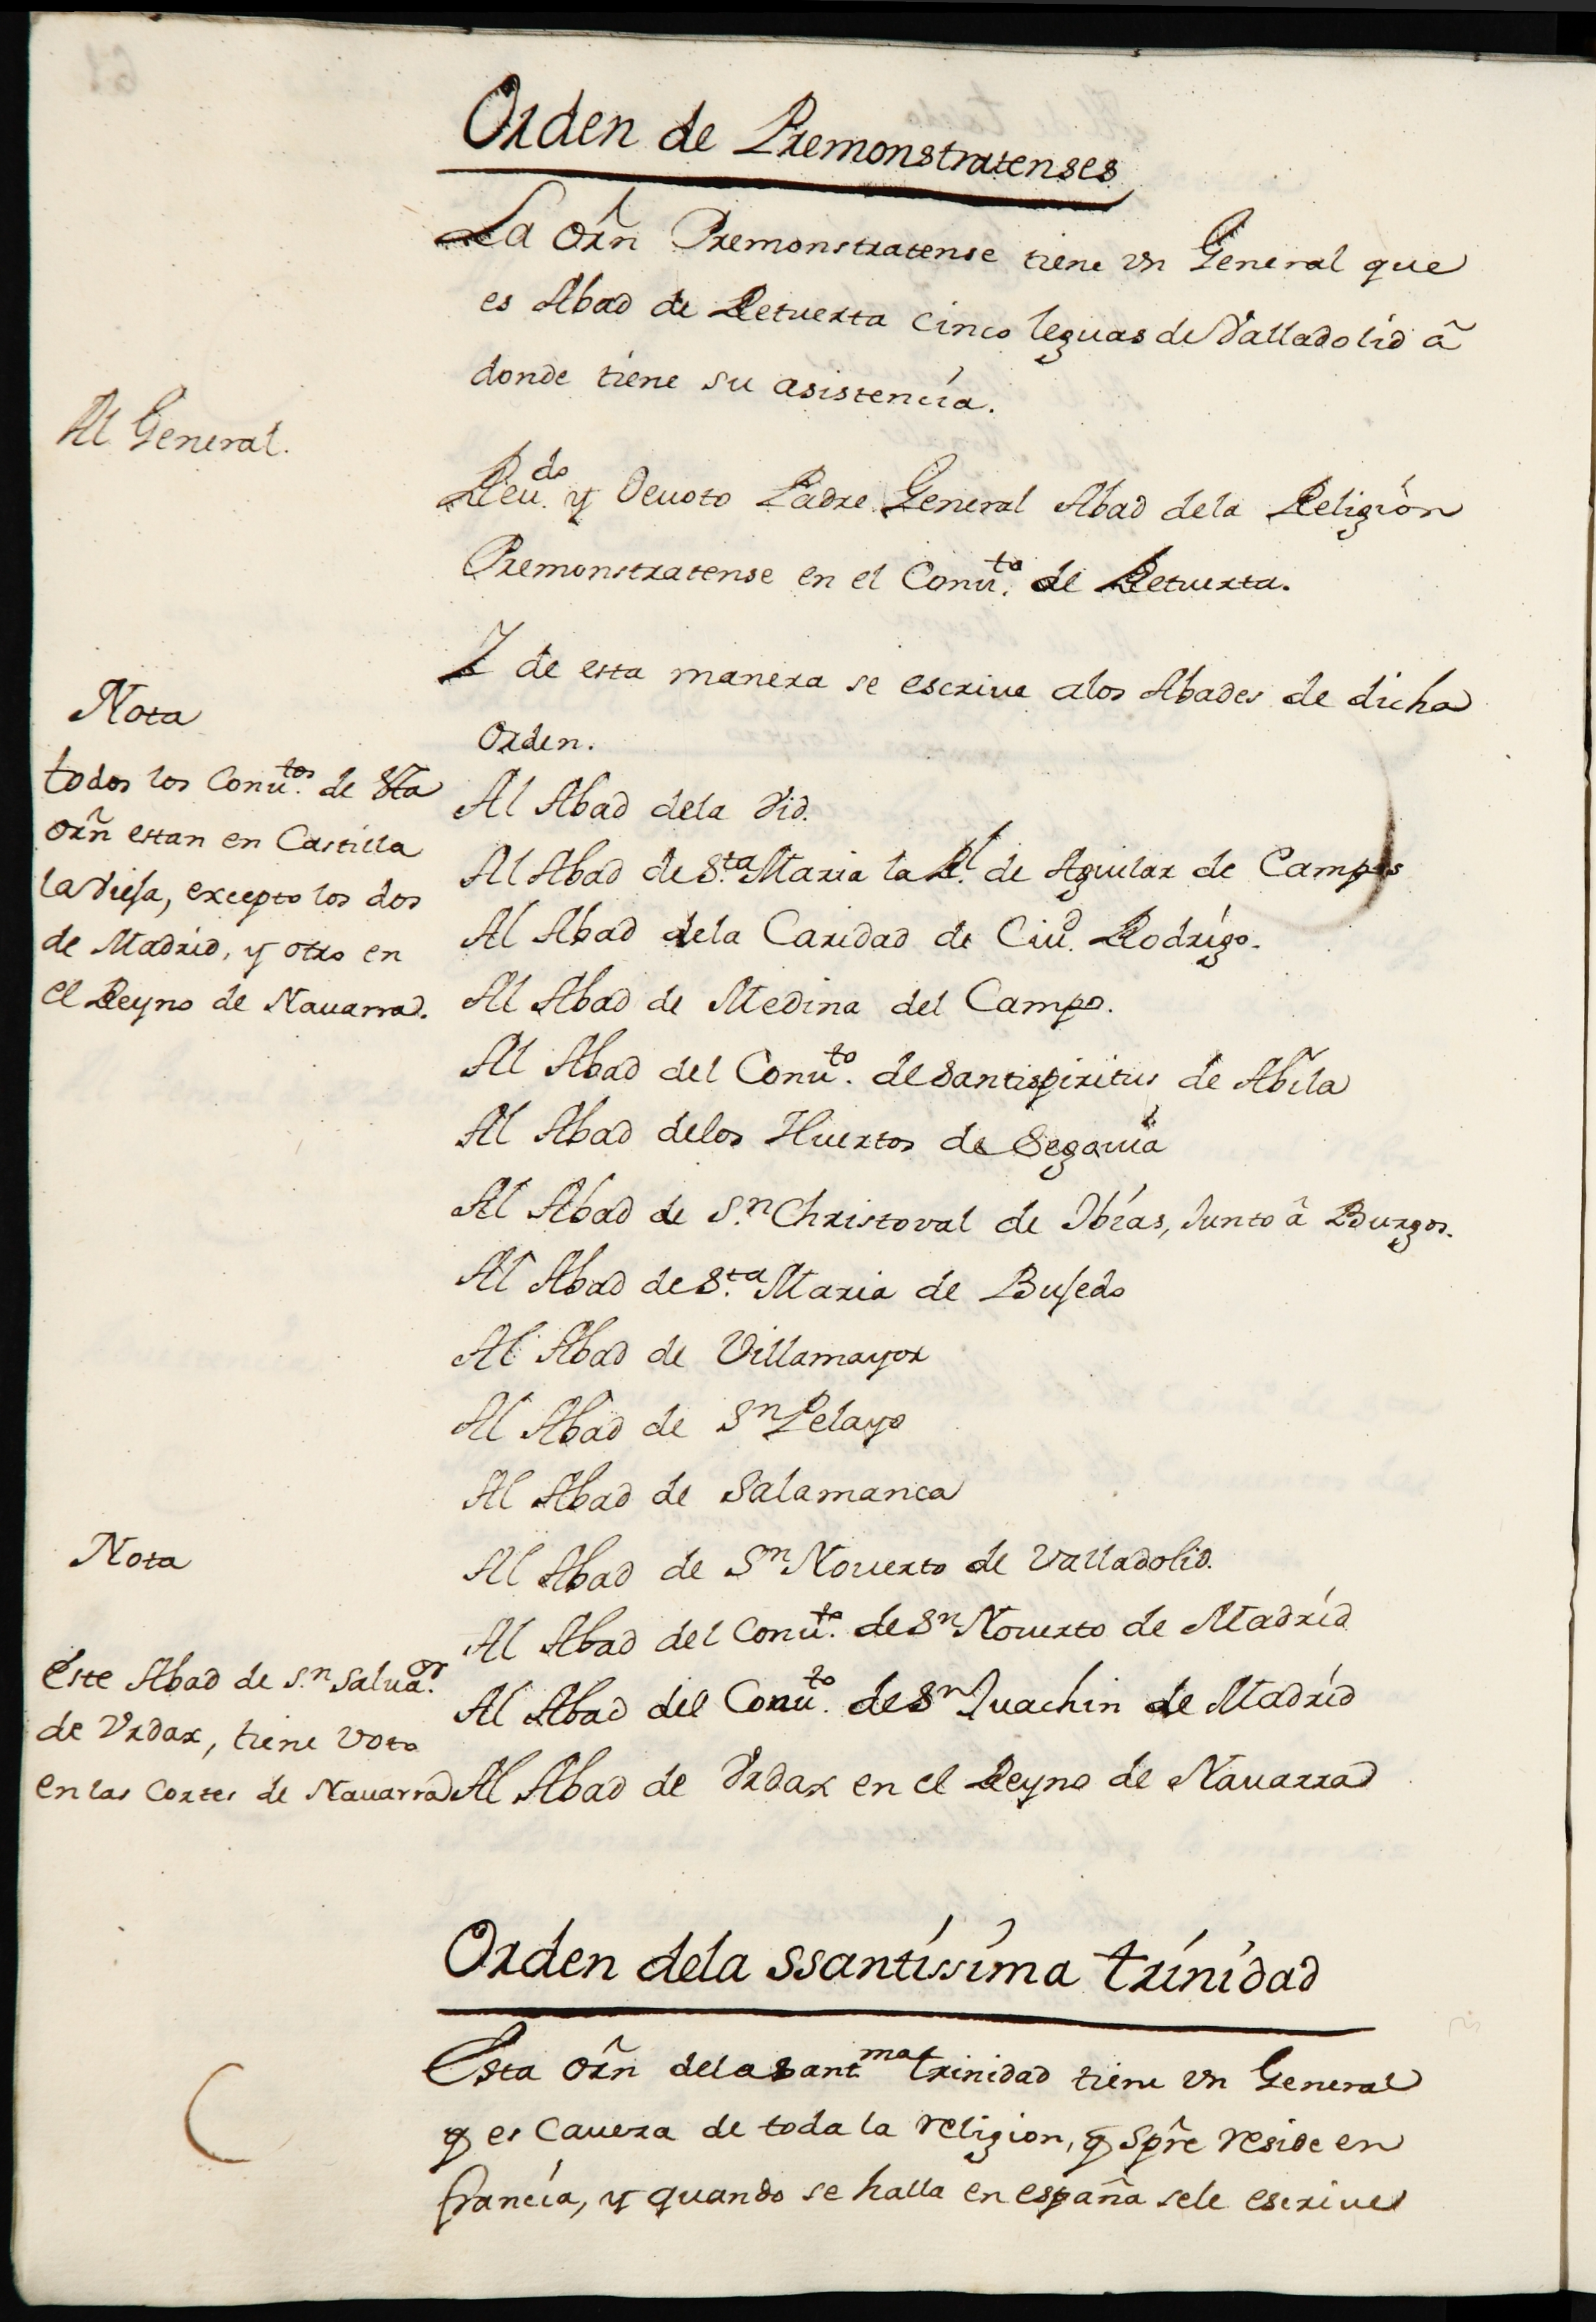 Orden de Premonstratenses
La orñ Premonstratense tiene vn General que
es Abad de Retuerta cinco leguas de Valladolid â
donde tiene su asistencía.
Al General.
Reu.do y Deuoto Padre General Abad dela Religiòn
Premonstratense en el Conu.to de Retuerta.
Y de esta manera se escriue alos Abades de dicha
Orden.
Nota
todos los Conu.tos de
orñ estan en Castilla
la Viefa, excepto los dos
de Madrid, y otro en
el Reyno de Nauarra.
Al Abad dela Vid.
Al Abad de S.ta Maria la Rl. de Aguilar de Campos
Al Abad dela Caridad de Ciud. Rodrígo.
Al Abad de Medina del Campo.
Al Abad del Conu.to de Santispiritus de Abila
Al Abad delos Huertos de Segouia
Al Abad de S.n Christoval de Ibías, Junto â Burgos.
Al Abad de S.ta Maria de Bufedo
Al Abad de Villamayor
Al Abad de Sn Pelayo
Al Abad de Salamanca
Al Abad de Sn Nouerto de Valladolid.
Al Abad del Conu.to de Sn Nouerto de Madríd
Al Abad del Conu.to de Sn Juachin de Madríd
Al Abad de Vrdax en el Reyno de Nauarra
Nota
este Abad de S.n Salua.or
de Vrdax, tiene voto
en las Cortes de Nauarra
Orden dela ssantíssíma trínídad
Esta orñ dela santma trinidad tiene vn General
q es caueza de toda la religion, q spre reside en
francía, y quando se halla en españa sele escriue